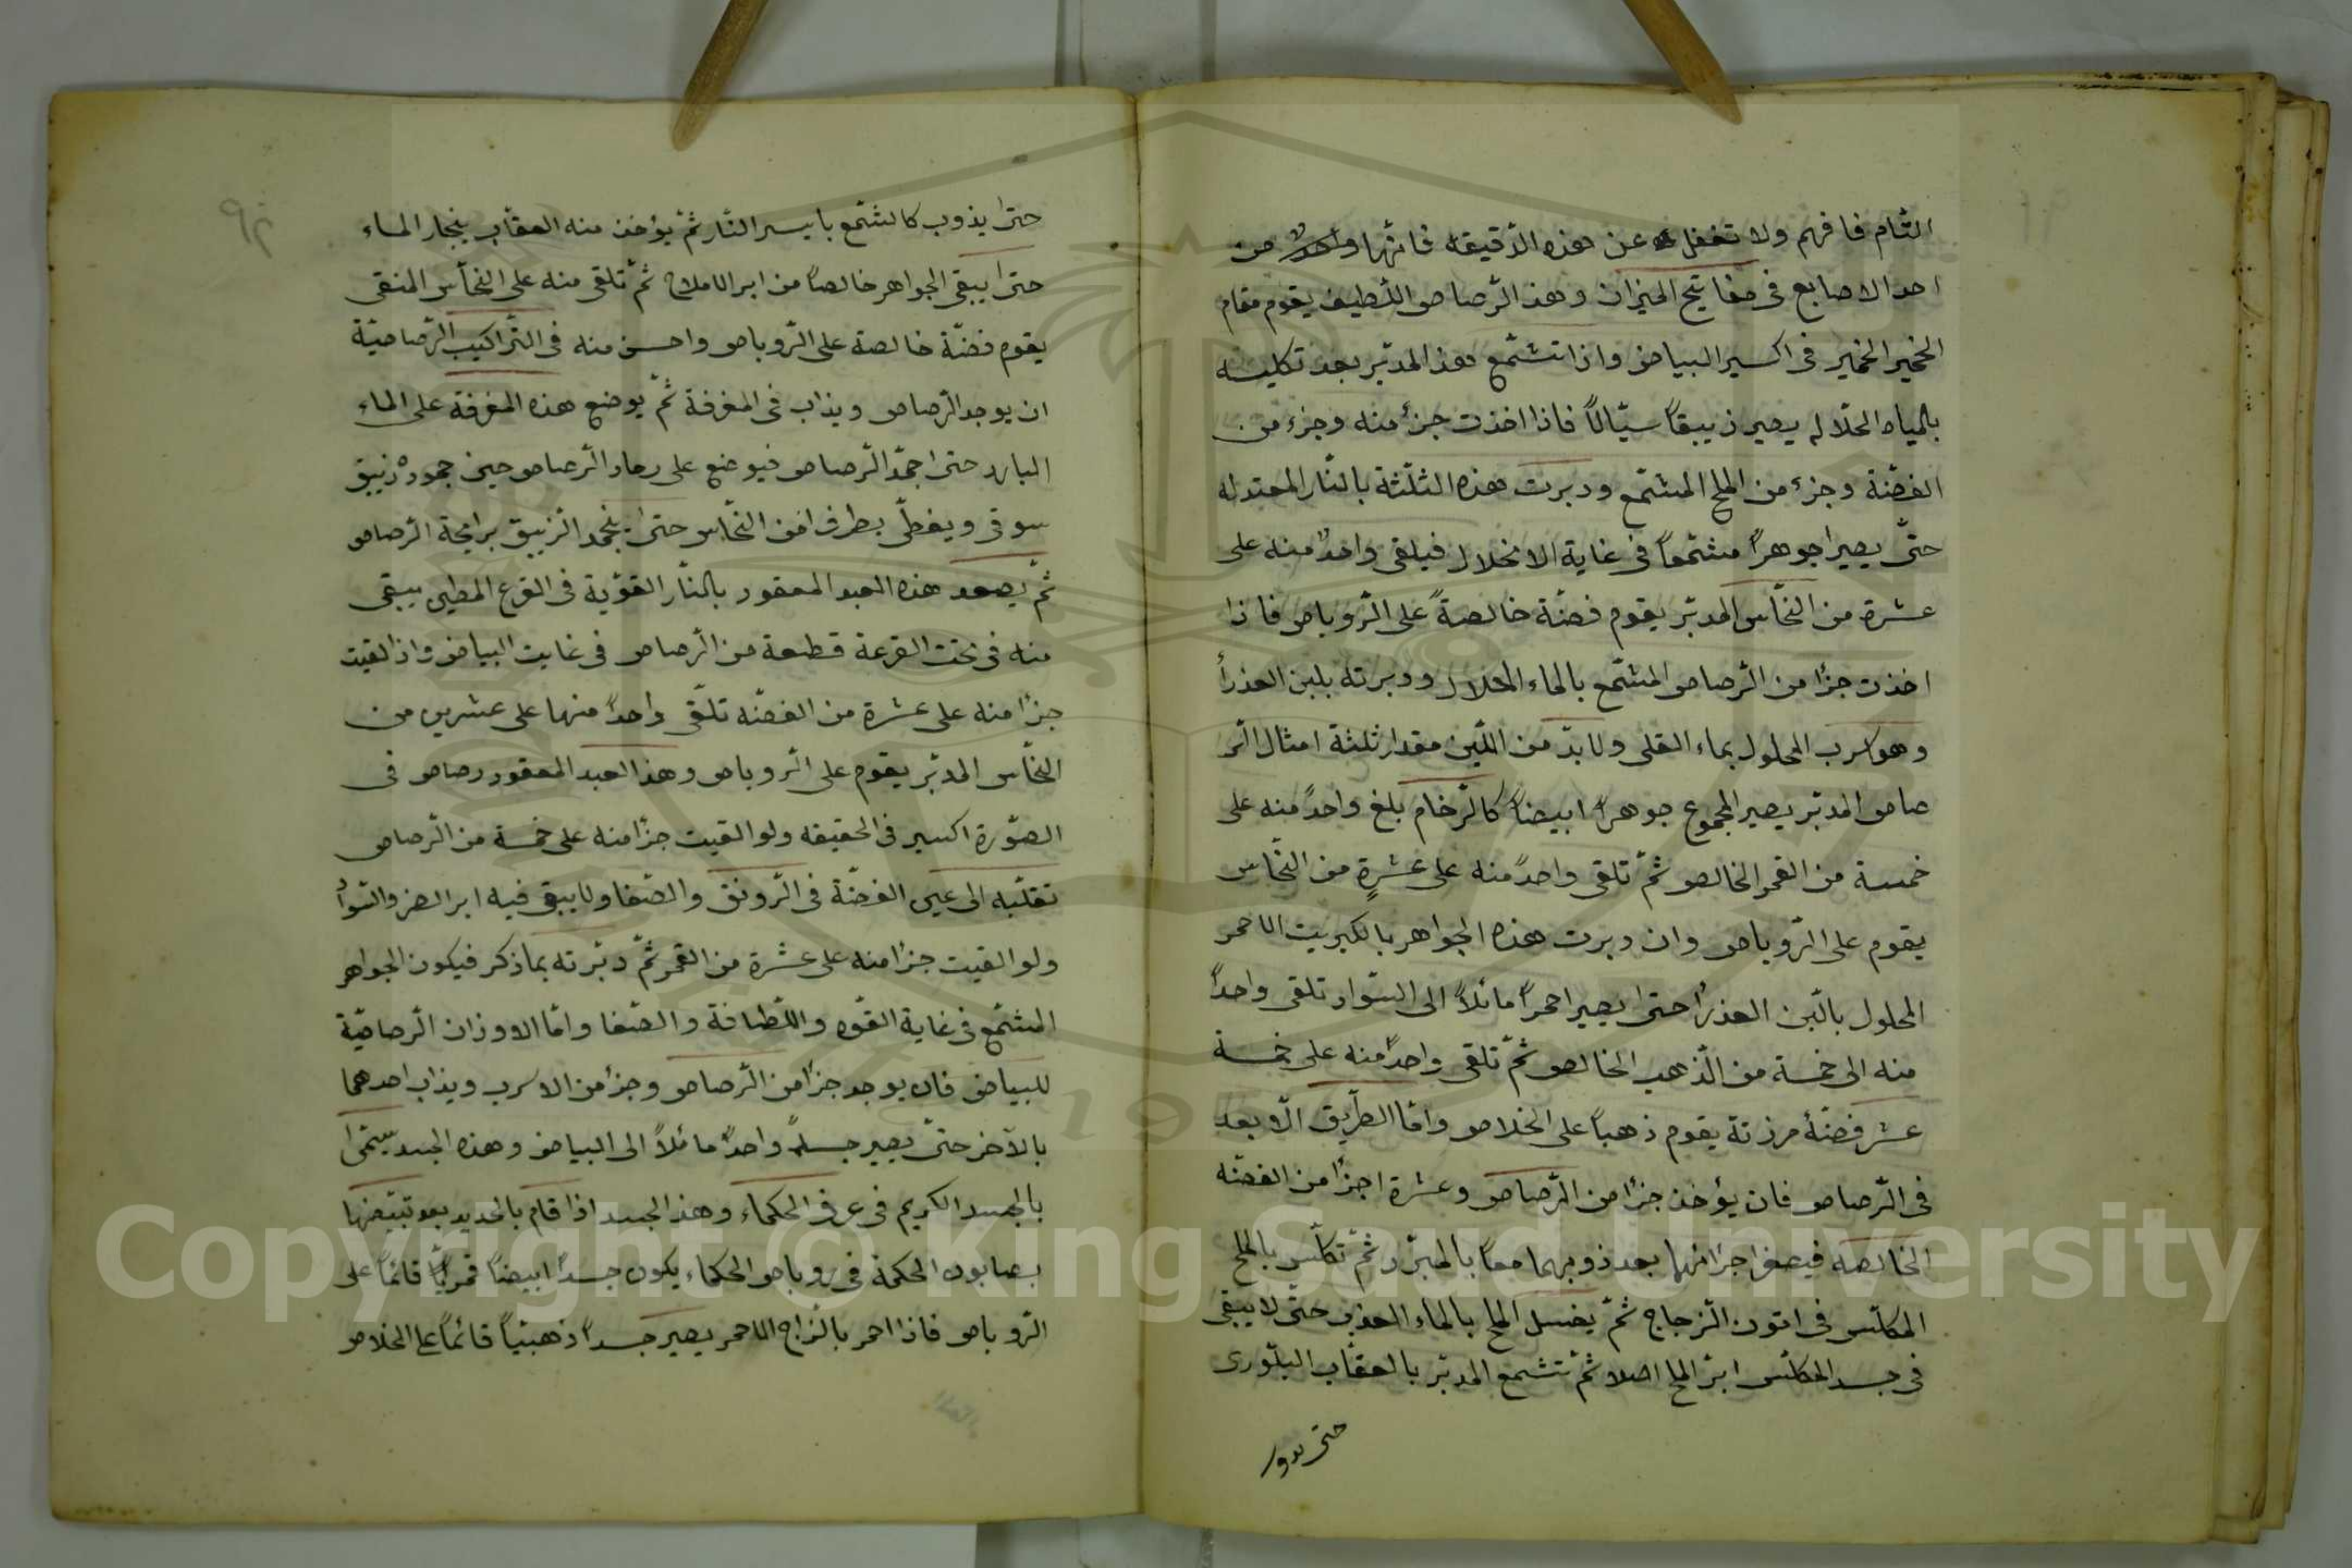 التام فافهم ولا تغفل عن هذه الدقيقة فانها واحدٌ من
احد الاصابع فى مفاتيح الميزان وهذ الرّصاص اللّطيف يقوم مقام
الخمير الخمير فى اكسير البياض واذا تشمّع هذ المدبّر بعد تكليسه
بالمياه الحلّاله يصير زيبقاً سيّالاً فاذا اخذت جزءً منه وجزء من
الفضّة وجزء من الملح المشمّع ودبرت هذه الثلثة بالنّار المعتدله
حتّى يصيرا جوهراً مشمّعاً فى غاية الانحلال فيلقى واحدٌ منه على
عشرة من النحّاس المدبّر يقوم فضّة خالصةً على الرّوباص فاذا
اخذت جزاً من الرّصاص المشمّع بالماء المحلال ودبرته بلبن العذرأ
وهو اسرب المحلول بماء القلى ولا بدّ من اللّبن مقدار ثلثة امثال الر
صاص المدبّر يصير المجموع جوهراً ابيضاً كالرّخام بلغ واحدً منه على
خمسة من القمر الخالص ثمّ تلقى واحدً منه على عشرةٍ من النحّاس
يقوم على الرّوباص وان دبرت هذه الجواهر بالكبريت الاحمر
المحلول بالّبن العذرأ حتىّ يصير احمراً مائلاً الى السّواد تلقى واحداً
منه الى خمسة من الذّهب الخالص ثمّ تلقى واحدً منه على خمسة
عشر فضّة مرزنة يقوم ذهباً على الخلاص وامّا الطّريق الاّوبعد
فى الرّصاص فان يؤخذ جزاً من الرّصاص وعشرة اجزاً من الفضّه
الخالصه فيصغرا جزائهما بعد ذوبهما معاً بالمبرّد ثمّ تكلّس بالملح
المكلّس فى اتون الزّجاج ثمّ يغسل الملح بالماء العذب حتّى لا يبقى
فى جسد المكلّس ابرّ الملح اصلا ثمّ تشمع المدبّر بالعقاب البلّورى
حتى يذوب
حتىّ يذوب كالشّمع بايسر النّار ثمّ يؤخذ منه العقّاب ببخار الماء
حتىّ يبقى الجواهر خالصاً من ابر الاملاح ثمّ تلقى منه على النحّاس المنقى
يقوم فضّة خالصة على الرّوباص واحسن منه فى التّراكيب الرّصاصيّة
ان يوجد الرّصاص ويذاب فى المغرفة ثمّ يوضع هذه المغرفة على الماء
البارد حتىّ اجمدّ الرّصاص فيوضع على رماد الرّصاص حين جموده زئيبق
سوقى ويغطّى بطرف من النحّاس حتىّ ينجمد الزيبق برايحة الرّصاص
ثمّ يصعد هذه العبد المعقود بالنّار القوّية فى القرع المطين يبقى
منه فى تحت القرعة قطعة من الرّصاص فى غايت البياض واذ القيت
جزاً منه على عشرة من الفضّه تلقّى واحداً منها على عشرين من
النحّاس المدبّر يقوم على الرّوباص وهذ العبد المعقود رصاص فى
الصّورة اكسير فى الحقيقه ولو القيت جزاً منه على خمسة من الرّصاص
تقلّبه الى عين الفضّة فى الرّونق والصّفا ولا يبقى فيه ابر الصر والسّواد
ولو القيت جزاً منه على عشرة من القمر ثمّ دبّرته بما ذكر فيكون الجواهر
المشمّع فى غاية القوّه واللّطافة والصّفا وامّا الاوزان الرّصاصيّة
للبياض فان يوجد جزاً من الرّصاص وجزاً من الاسرب ويذاب احدهما
بالآخر حتىّ يصير جسداً واحداً مائلاً الى البياض وهذه الجسد يسّمىّ
بالجسد الكريم فى عرف الحكماء وهذ الجسد اذا قام بالحديد بعد تبيّضها
بصابون الحكمة فى روباص الحكماء يكون جسداً ابيضاً قمريًّا قائماً على
الرّوباص فاذا احمر بالزّاج الاحمر يصير جسداً ذهبيّاً قائماً على الخلاص
Copyright © King Saud University